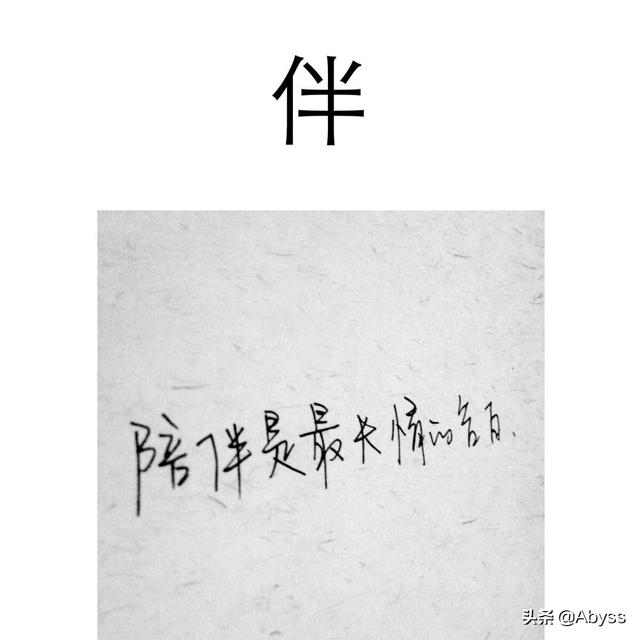 伴
陪伴是最长情的告白.
头条 @Abyss